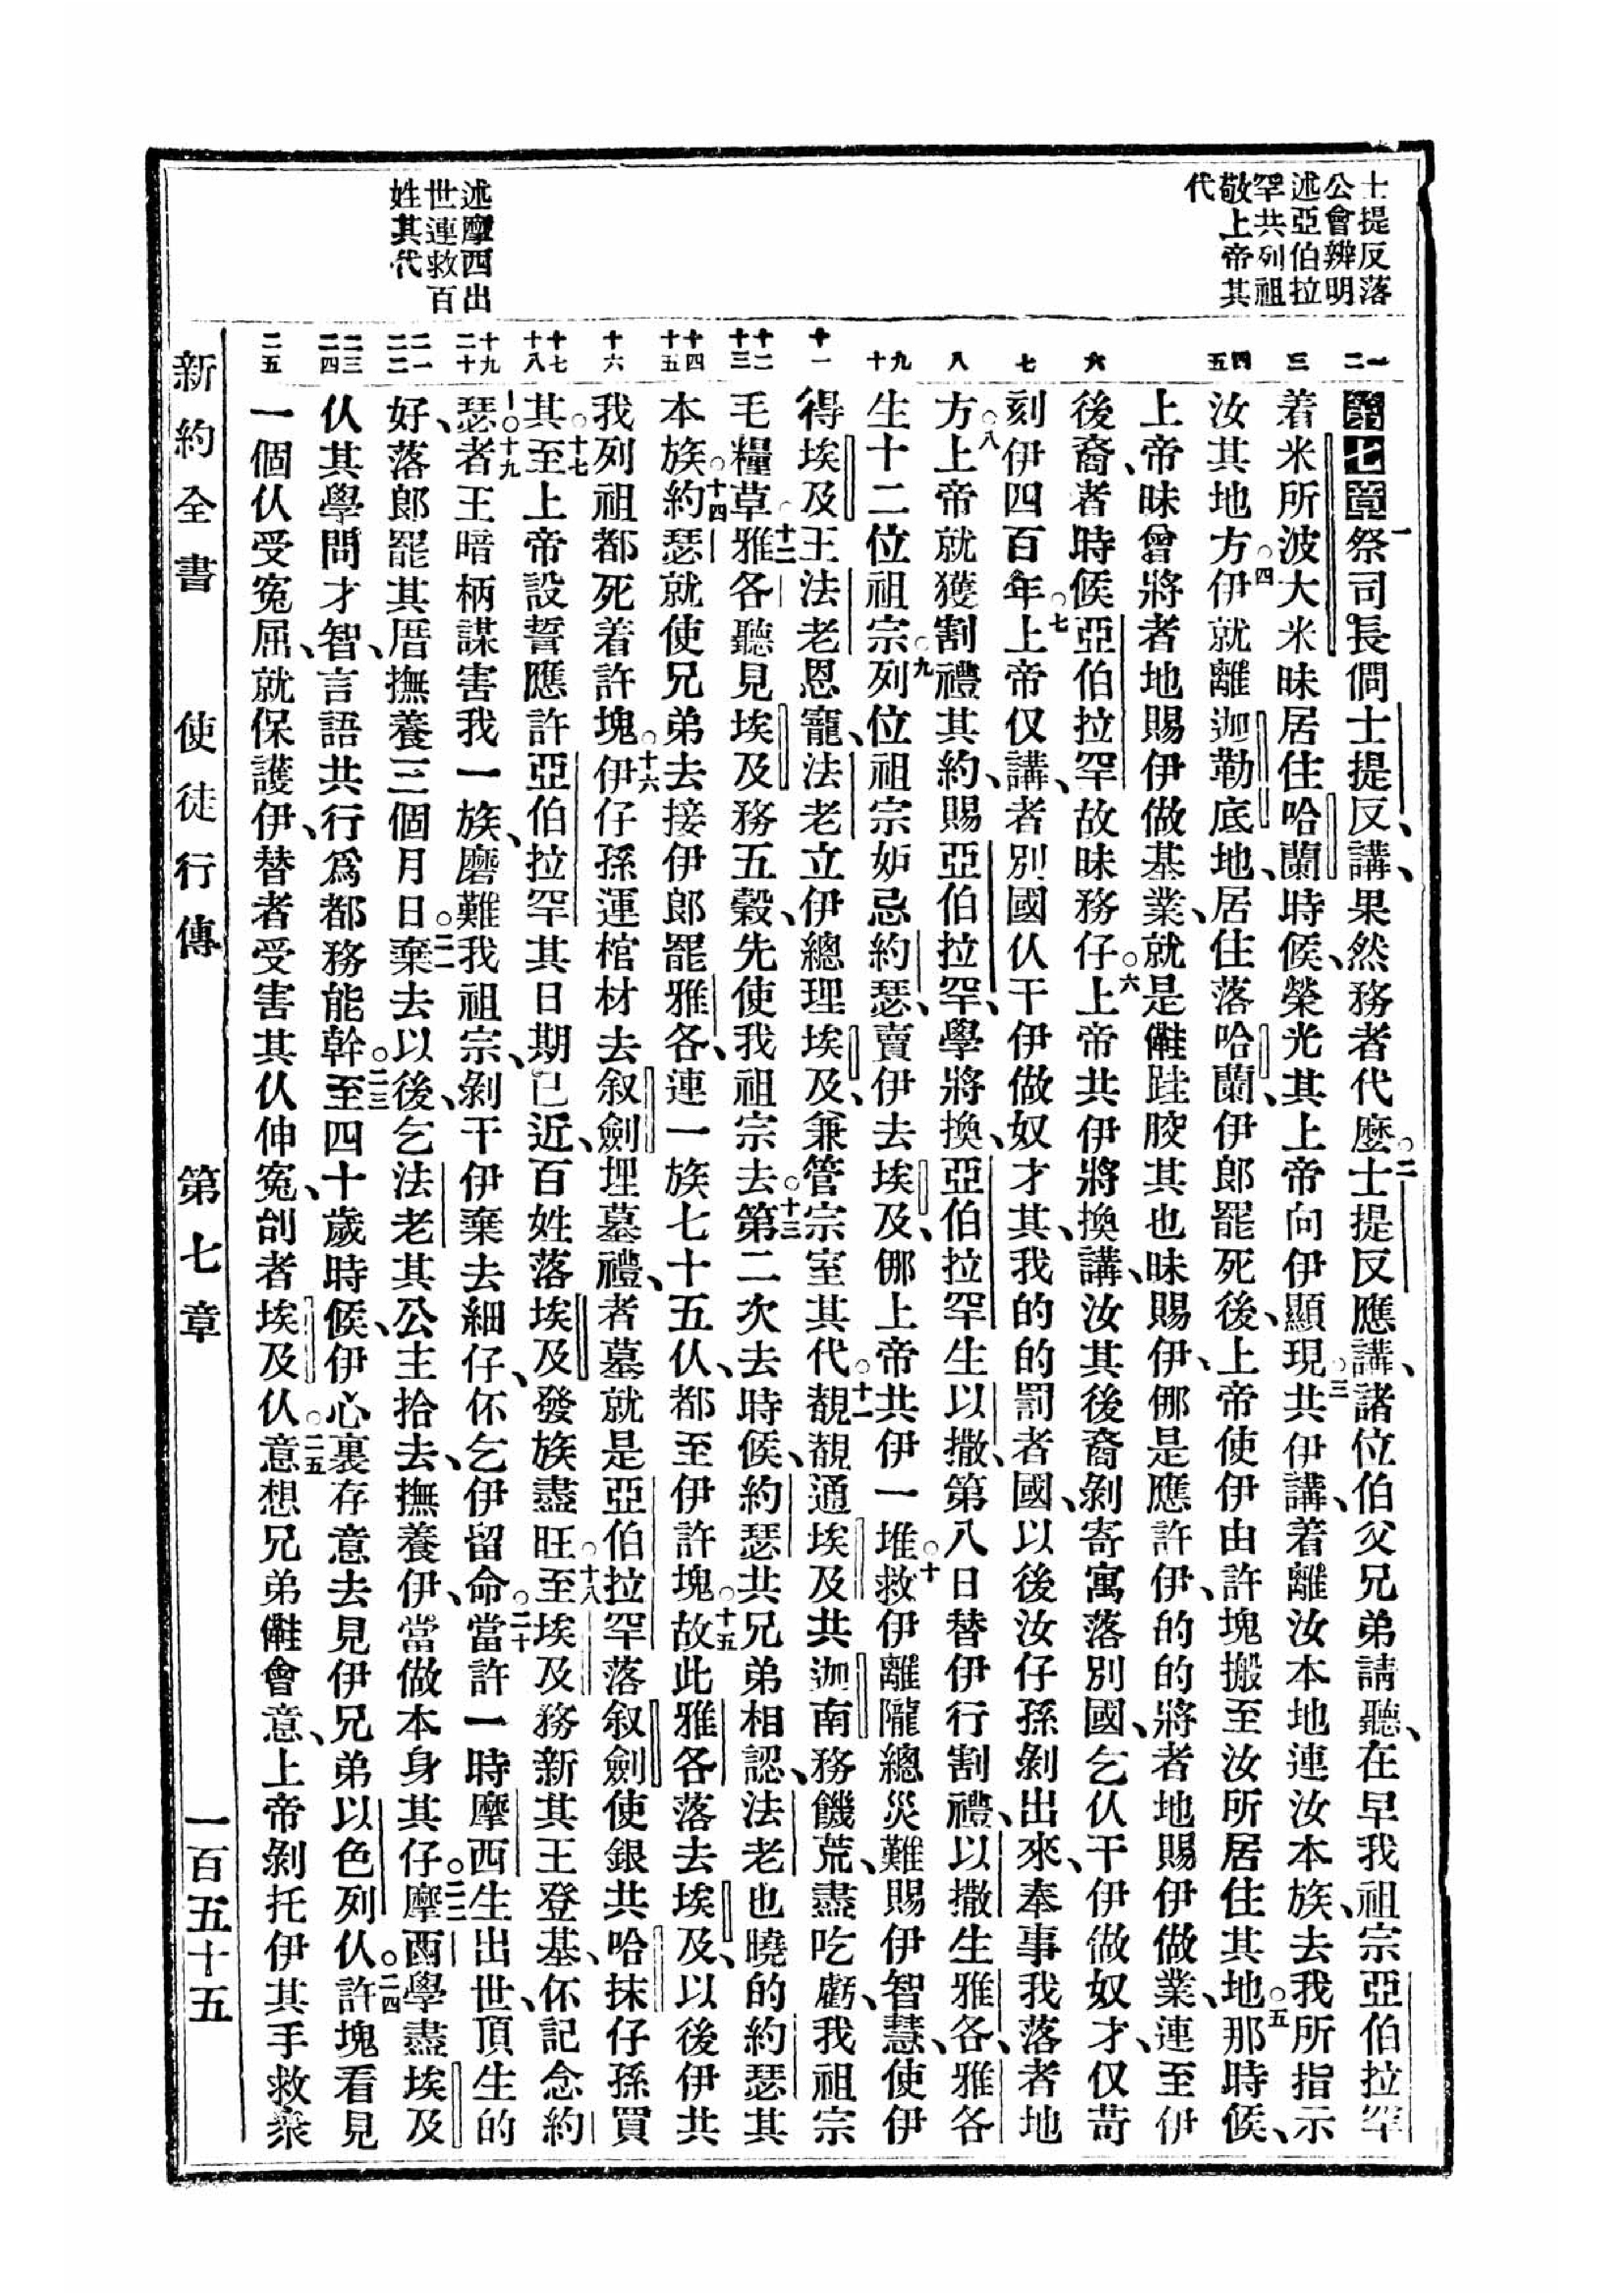 士提反落
公會辨明
述亞伯拉
罕共列祖
敬上帝其
代
述摩西出
世連救百
姓其代
一
二
三
四
五
六
七
八
九
十
十一
十二
十三
十四
十五
十六
十七
十八
十九
二十
二一
二二
二三
二四
二五
第七章一祭司長僩士提反、講、果然務者代麽。二士提反應講、諸位伯父兄弟請聽、在早我祖宗亞伯拉罕
着米所波大米昧居住哈蘭時候、榮光其上帝向伊顯現。三共伊講、着離汝本地連汝本族、去我所指示
汝其地方。四伊就離迦勒底地、居住落哈蘭、伊郎罷死後、上帝使伊由許塊搬至汝所居住其地。五那時候、
上帝昧曾將者地賜伊做基業、就是㒕跬胶其也昧賜伊、㑚是應許伊、的的將者地賜伊做業、連至伊
後裔、者時候亞伯拉罕故昧務仔。六上帝共伊將換講、汝其後裔剝寄寓落別國、乞仈干伊做奴才、仅苛
刻伊四百年。七上帝仅講、者別國仈干伊做奴才其、我的的罰者國、以後汝仔孫剝出來、奉事我落者地
方。八上帝就獲割禮其約、賜亞伯拉罕、學將換、亞伯拉罕生以撒、第八日替伊行割禮、以撒生雅各、雅各
生十二位祖宗。九列位祖宗妒忌約瑟、賣伊去埃及、㑚上帝共伊一堆。十救伊離隴總災難、賜伊智慧、使伊
得埃及王法老恩寵、法老立伊總理埃及、兼管宗室其代。十一覩覩通埃及共迦南務饑荒、盡吃虧、我祖宗
毛糧草。十二雅各聽見埃及務五穀、先使我祖宗去。十三第二次去時候、約瑟共兄弟相認、法老也曉的約瑟其
本族。十四約瑟就使兄弟去接伊郎罷雅各、連一族七十五仈、都至伊許塊。十五故此雅各落去埃及、以後伊共
我列祖都死着許塊。十六伊仔孫運棺材去叙劍埋墓禮、者墓就是亞伯拉罕落叙劍使銀共哈抹仔孫買
其。十七至上帝設誓應許亞伯拉罕其日期已近、百姓落埃及發族盡旺。十八至埃及務新其王登基、伓記念約
瑟、十九者王暗柄謀害我一族、磨難我祖宗、剝干伊棄去細仔、伓乞伊留命。二十當許一時摩西生出世、頂生的
好、落郎罷其厝撫養三個月日。二一棄去以後、乞法老其公主拾去、撫養伊、當做本身其仔。二二摩西學盡埃及
仈其學問才智、言語共行爲都務能幹。二三至四十歲時候、伊心裏存意去見伊兄弟以色列仈。二四許塊看見
一個仈受寃屈、就保護伊、替者受害其仈伸寃、刣者埃及仈。二五意想兄弟㒕會意、上帝剝托伊其手救衆
新約全書 使徒行傳 第七章 一百五十五